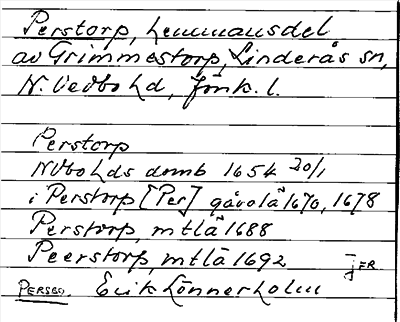 Perstorp, hemmansdel
av Grimmestorp, Linderås sn,
N. Vedbo hd, Jönk. l.
Perstorp
NVbo hds domb 1654 20/1
i Perstorp [Per] gåvolä 1670, 1678
Perstorp, mtlä 1688
Peerstorp, mtlä 1692
jFR
PERSBO. Erik Lönnerholm